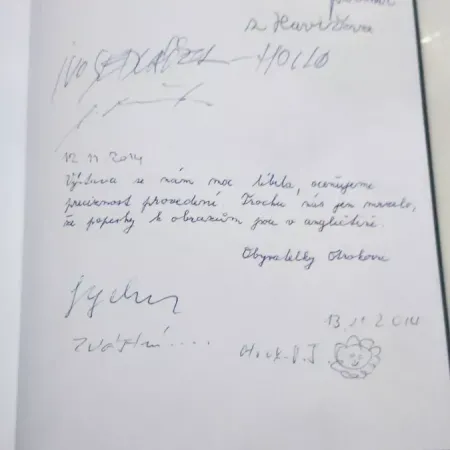 z Havířova
IVO SEDLÁČEK HOLLO
12 11 2014
Výstava se nám moc líbila, oceňujeme
preciznost provedení Trochu nás jen mrzelo,
že popisky k obrazům jsou v angličtině.
Obyvatelky Otrokovic
13.11.2014
Zvláštní....